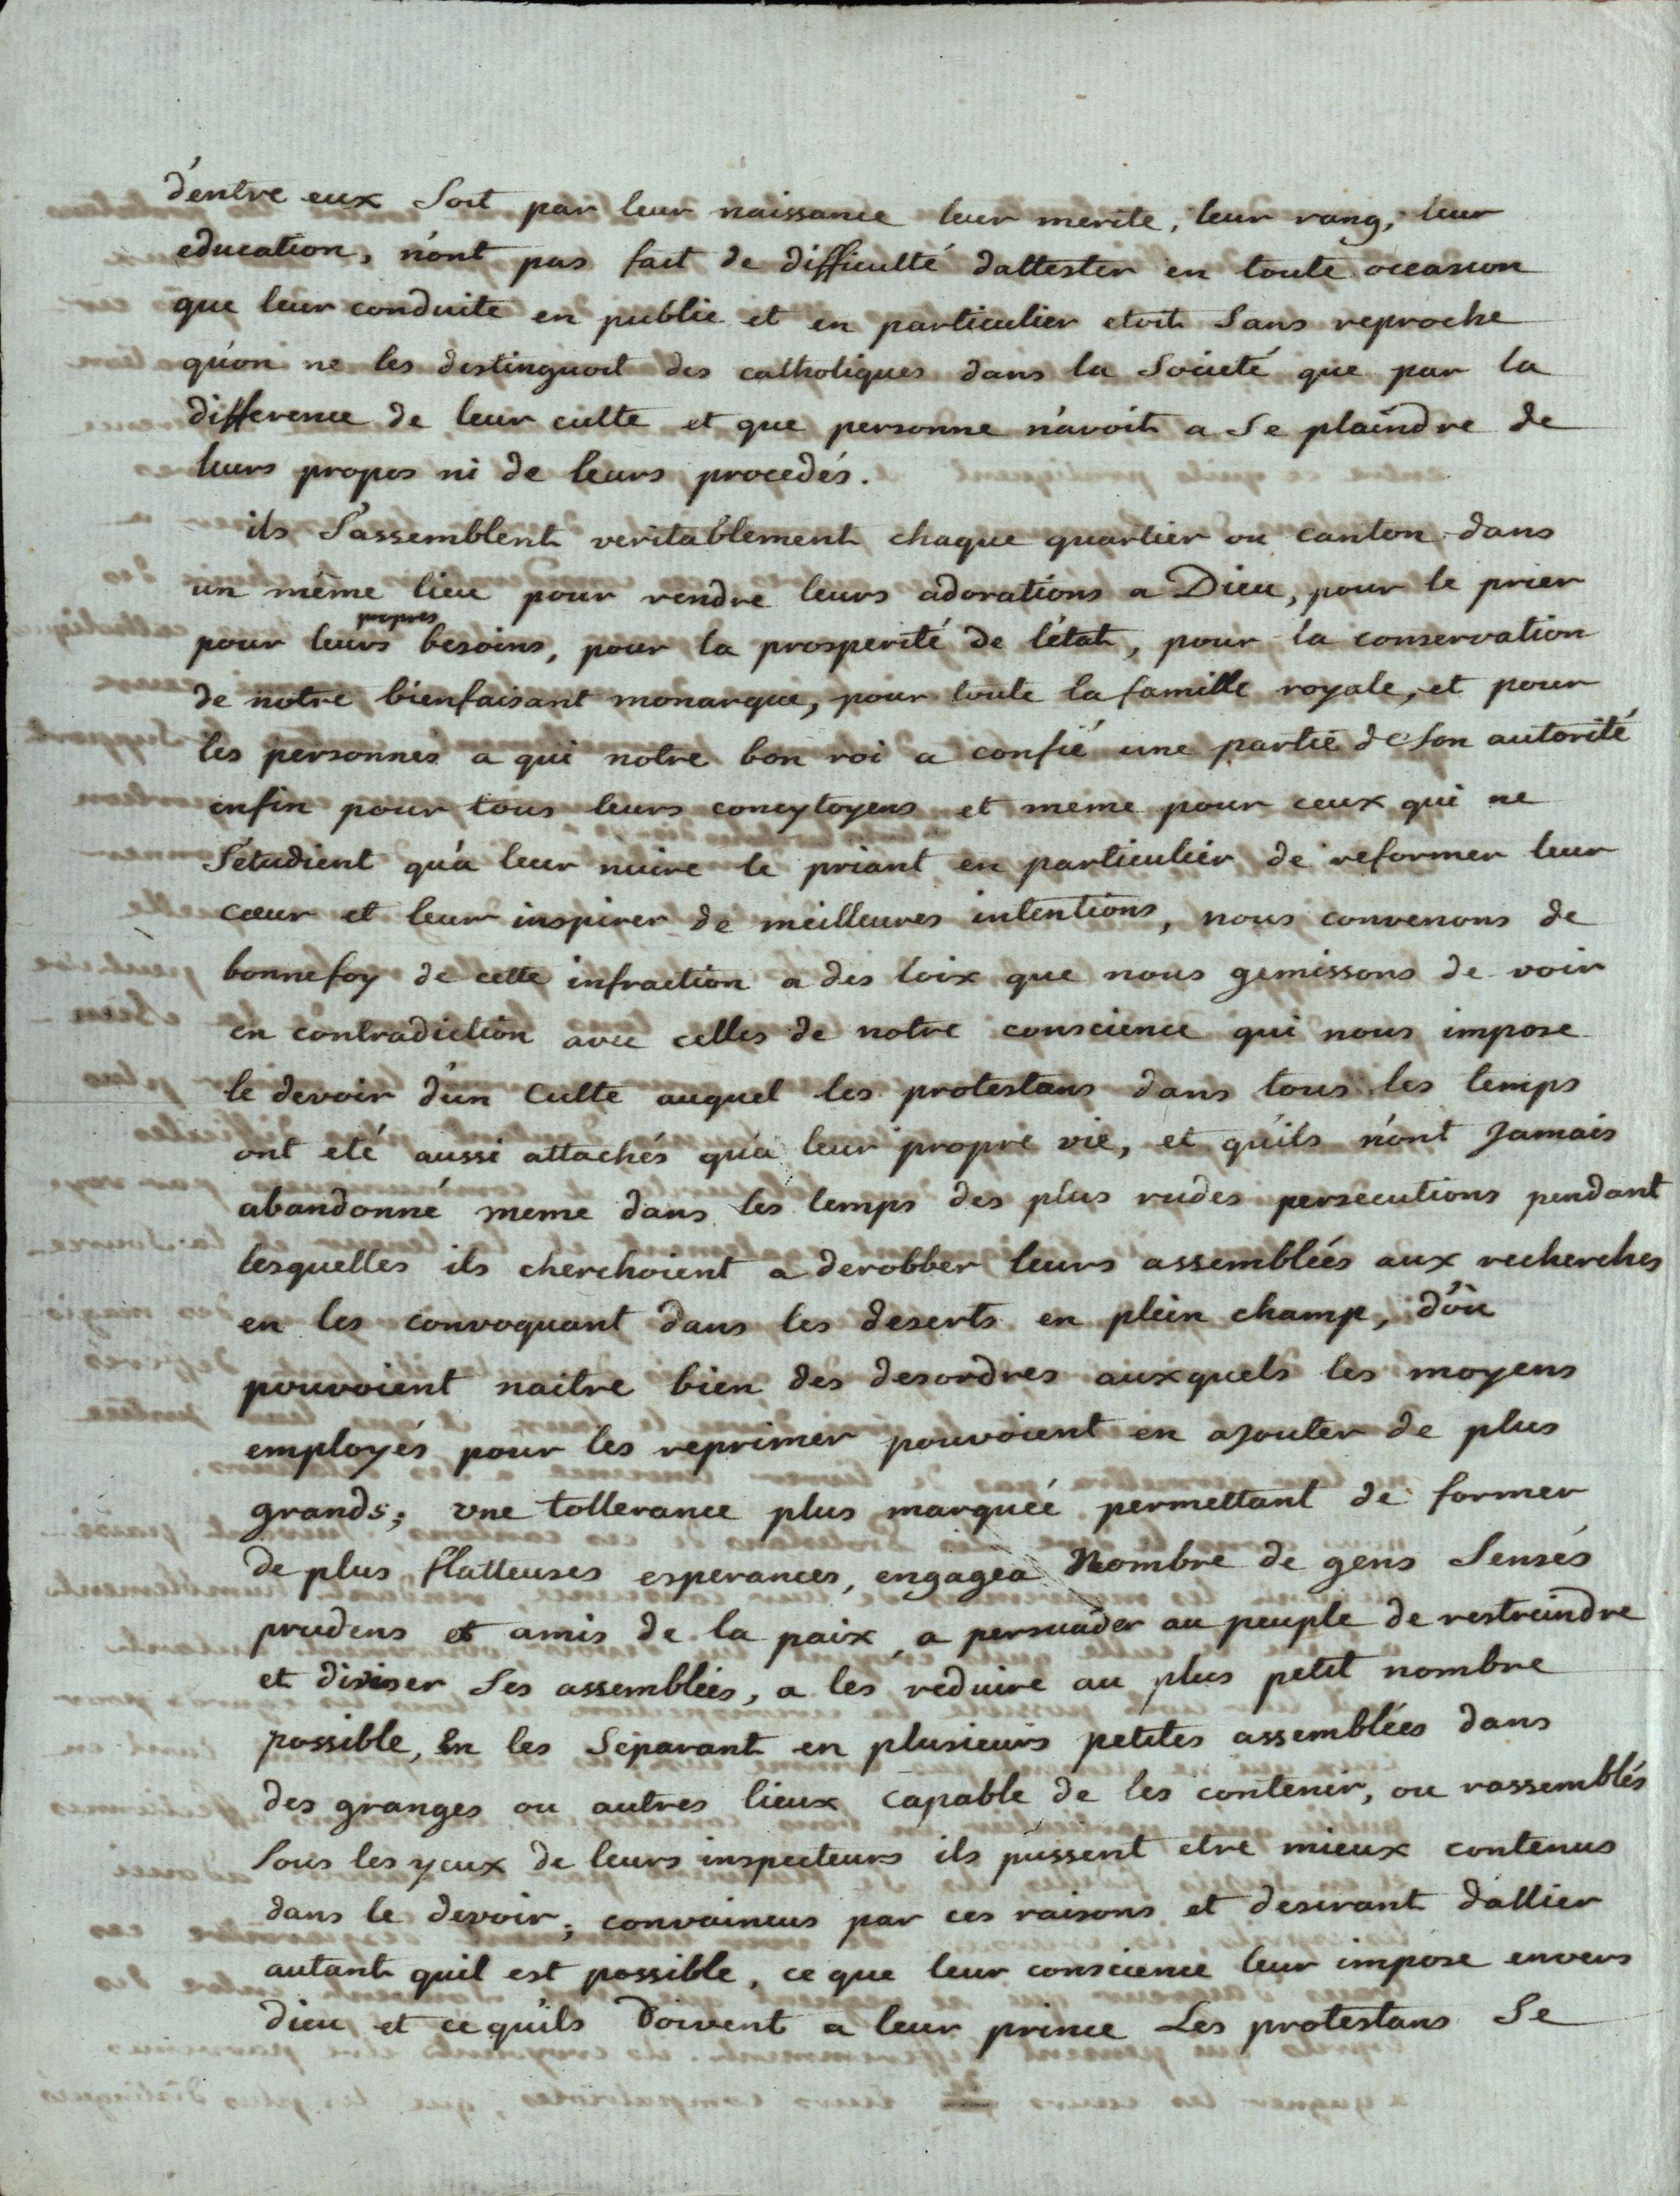 d'entre eux Soit par leur naissance leur merite, leur rang, leur
education, n'ont pas fait de difficulté dattester en toute occasion
que leur conduite en public et en particulier etoit Sans reproche
qu'on ne les distinguoit des catholiques dans la Societé que par la
difference de leur culte et que personne n'avoit a Se plaindre de
leurs propos ni de leurs procedés.
ils S'assemblent veritablement chaque quartier ou canton dans
un même lieu pour rendre leurs adorations a Dieu, pour le prier
pour leurs propres besoins, pour la prosperité de l'état, pour la conservation
de notre bienfaisant monarque, pour toute la famille royale, et pour
les personnes a qui notre bon roi a confié une partie de Son autorité
enfin pour tous leurs concytoyens et meme pour ceux qui ne
S'etudient qu'a leur nuire le priant en particulier de reformer leur
cœur et leur inspirer de meilleures intentions, nous convenons de
bonnefoy de cette infraction a des loix que nous gemissons de voir
en contradiction avec celles de notre conscience qui nous impose
le devoir d'un Culte auquel les protestans dans tous les temps
ont eté aussi attachés qu'a leur propre vie, et qu'ils n'ont Jamais
abandonné meme dans les temps des plus rudes persecutions pendant
lesquelles ils cherchoient a derobber leurs assemblées aux recherches
en les convoquant dans les deserts en plein champ, d'ôu
pouvoient naitre bien des desordres auxquels les moyens
employés pour les reprimer pouvoient en aJouter de plus
grands; vne tollerance plus marquée permettant de former
de plus flatteuses esperances, engagea Nombre de gens Sensés
prudens et amis de la paix, a persuader au peuple de restreindre
et diviser Ses assemblées, a les reduire au plus petit nombre
possible, En les Separant en plusieurs petites assemblées dans
des granges ou autres lieux Capable de les contenir, ou rassemblés
Sous les yeux de leurs inspecteurs ils pussent etre mieux contenus
dans le devoir; convaincus par ces raisons et desirant d'allier
autant quil est possible, ce que leur conscience leur impose envers
dieu et ce qu'ils Doivent a leur prince Les protestans Se